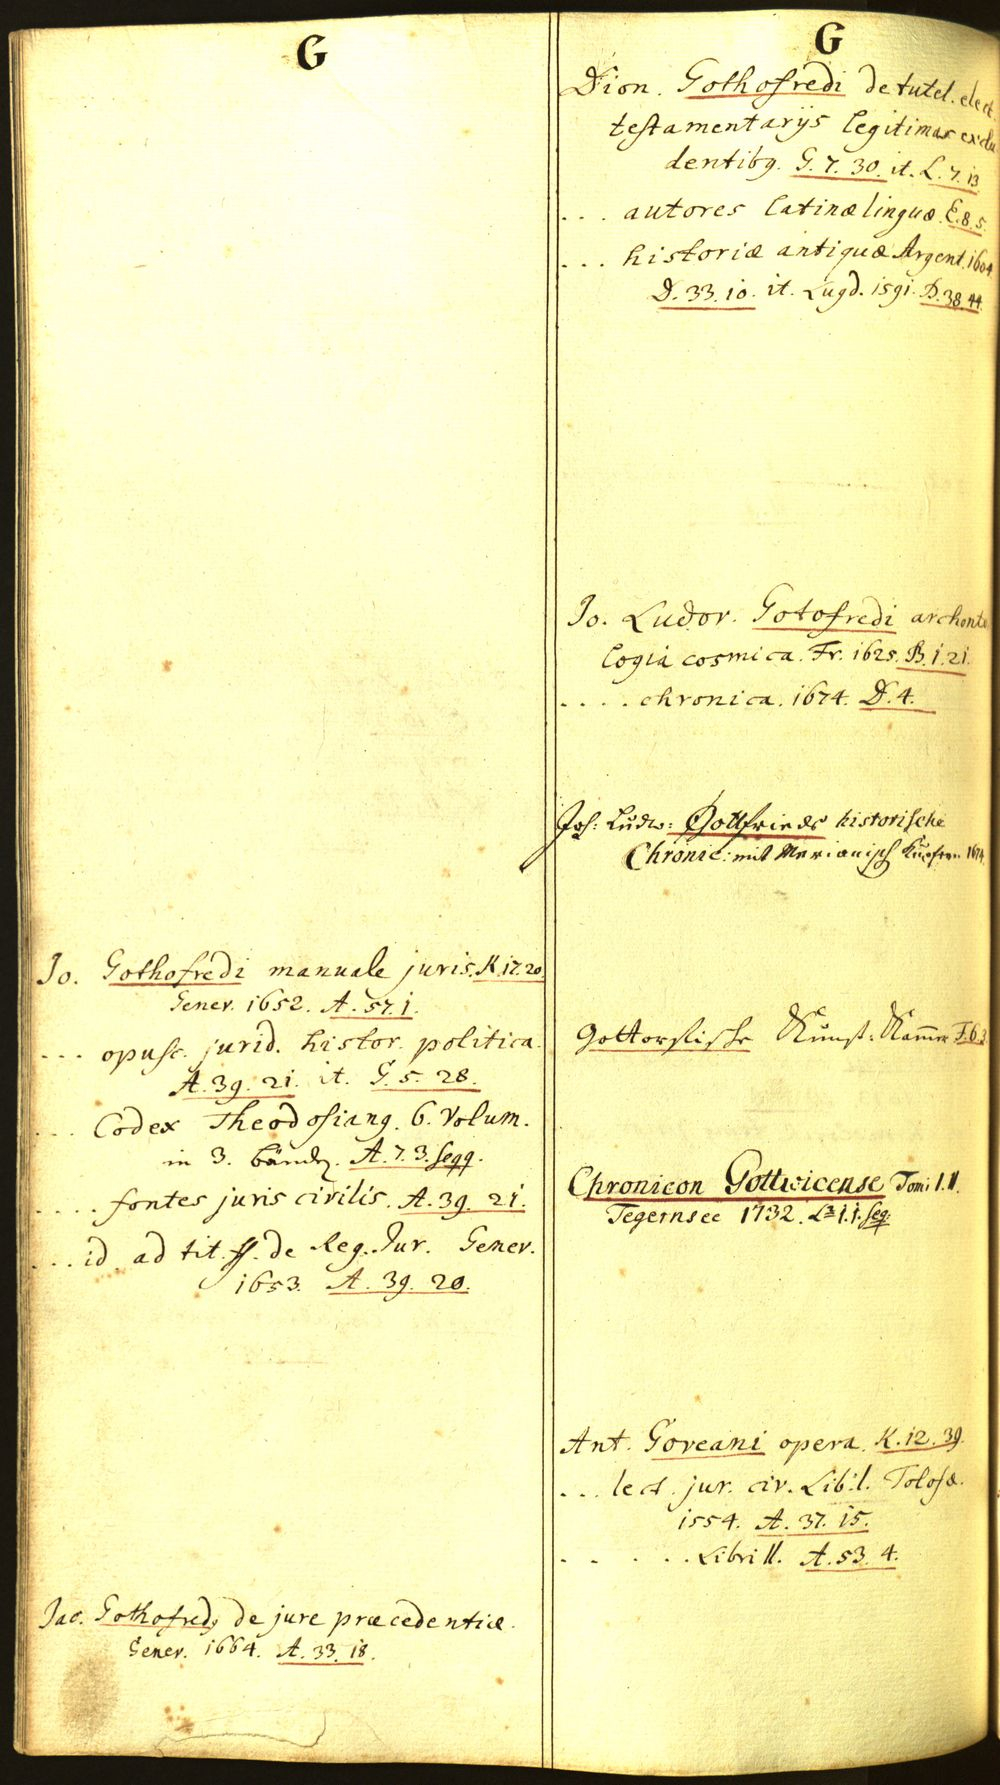 G
Jo. Gothofredi manuale juris. K. 17. 20.
Genev. 1652. A. 57. 1.
... opusc. jurid. histor. politica.
A. 39. 21. it. G. 5. 28.
... Codex Theodosiang. 6. Volum.
in 3. bänd. A. 7. 3. seqq.
.... fontes juris civilis. A. 39. 21.
... id ad tit. ff. de Reg. Jur. Genev.
1653. A. 39. 20.
Jac. Gothofredg de jure præcedentiæ.
Genev. 1664. A. 33. 18.
G
Dion. Gothofredi de tutel. elect.
testamentarijs legitimas exclu
dentibg. G. 7. 30. it. L. 7. 13.
... autores latinæ linguæ. E. 8. 5.
... historiæ antiquæ Argent. 1604.
D. 33. 10. it. Lugd. 1591. D. 38. 44.
Jo. Ludov. Gotofredi archonto
logia cosmica. Fr. 1625. B. 1. 21.
.... chronica. 1674. D. 4.
Joh: Ludw: Gottfrieds historische
Chronic: mit Merianisch Kupfern 1674.
Gottorfische Kunst-Kammer F. 6. 3.
Chronicon Gottwicense Tom: I. II.
Tegernsee 1732. La 1. 1. seq.
Ant. Goveani opera. K. 12. 39.
... lect. jur. civ. Lib: I. Tolosæ.
1554. A. 37. 15.
- - - ... Libri II. A. 53. 4.